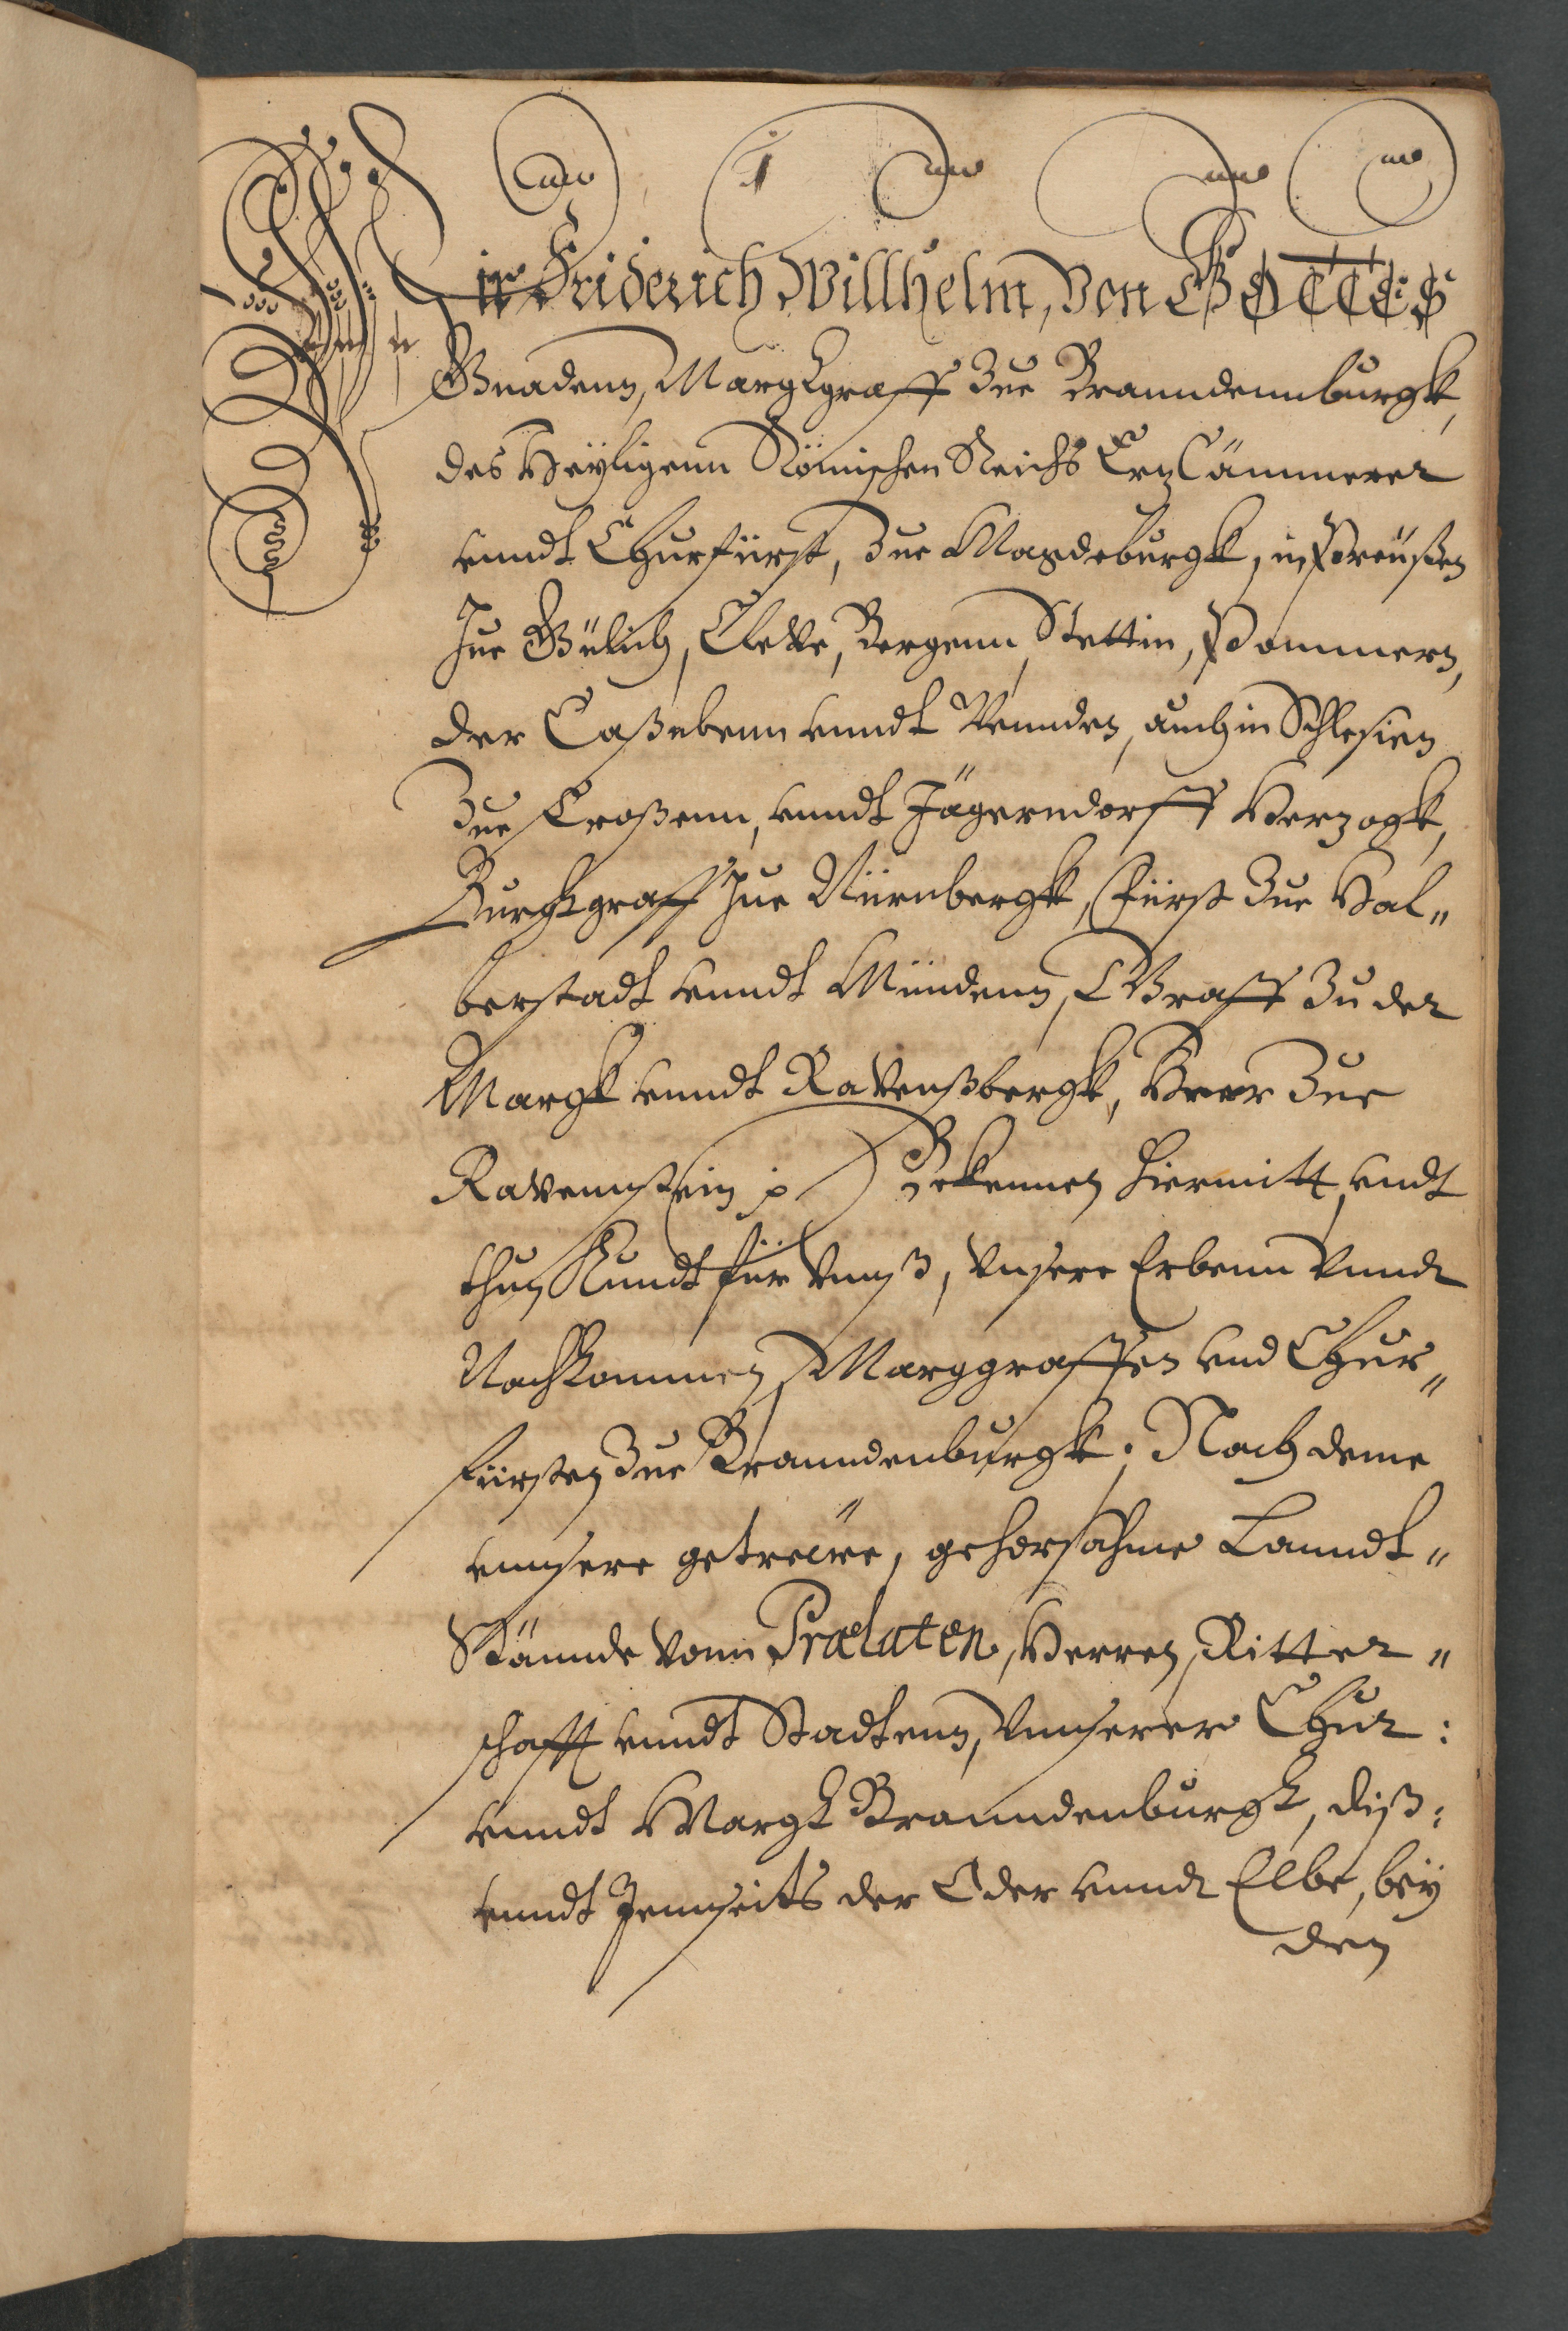 Wir Friderich Willhelm, Von GOTTES
Gnadenn, Margkgraff Zue Branndennburgk,
des Heyligenn Römischen Reichs Ertz Cämmerer
unndt Churfürst, Zue Magdeburgk, in Preüßen
Zue Gülich, Cleve, Bergenn, Stettin, Pommern,
der Caßubenn unndt Wennden, auch in Schlesien
Zue Croßenn, unndt Jägerndorff Herzogk,
Burgkgraff Zue Nürnbergk, Fürst Zue Hal„
berstadt unndt Mündenn, Graff Zu der
Margk unndt Ravenßbergk, Herr Zue
Ravennstein p Bekennen hiermitt, undt
thun Kundt für Unnß, Unsere Erbenn Unndt
Nachkommen, Marggraffen und Chur„
fürsten Zue Branndenburgk. Nach deme
unnsere getreüwe, gehorsahme Lanndt„
Stännde Vonn Prælaten, Herren, Ritter„
schafft unndt Stadtenn, Unnserer Chur:
unndt Margk Branndenburgk, diß:
unndt Jennseits der Oder unndt Elbe, bey
den